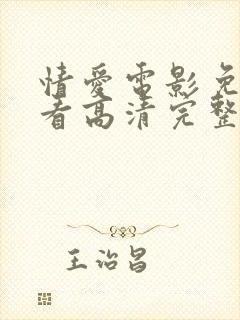 情爱电影免
看高清完整
王治昌